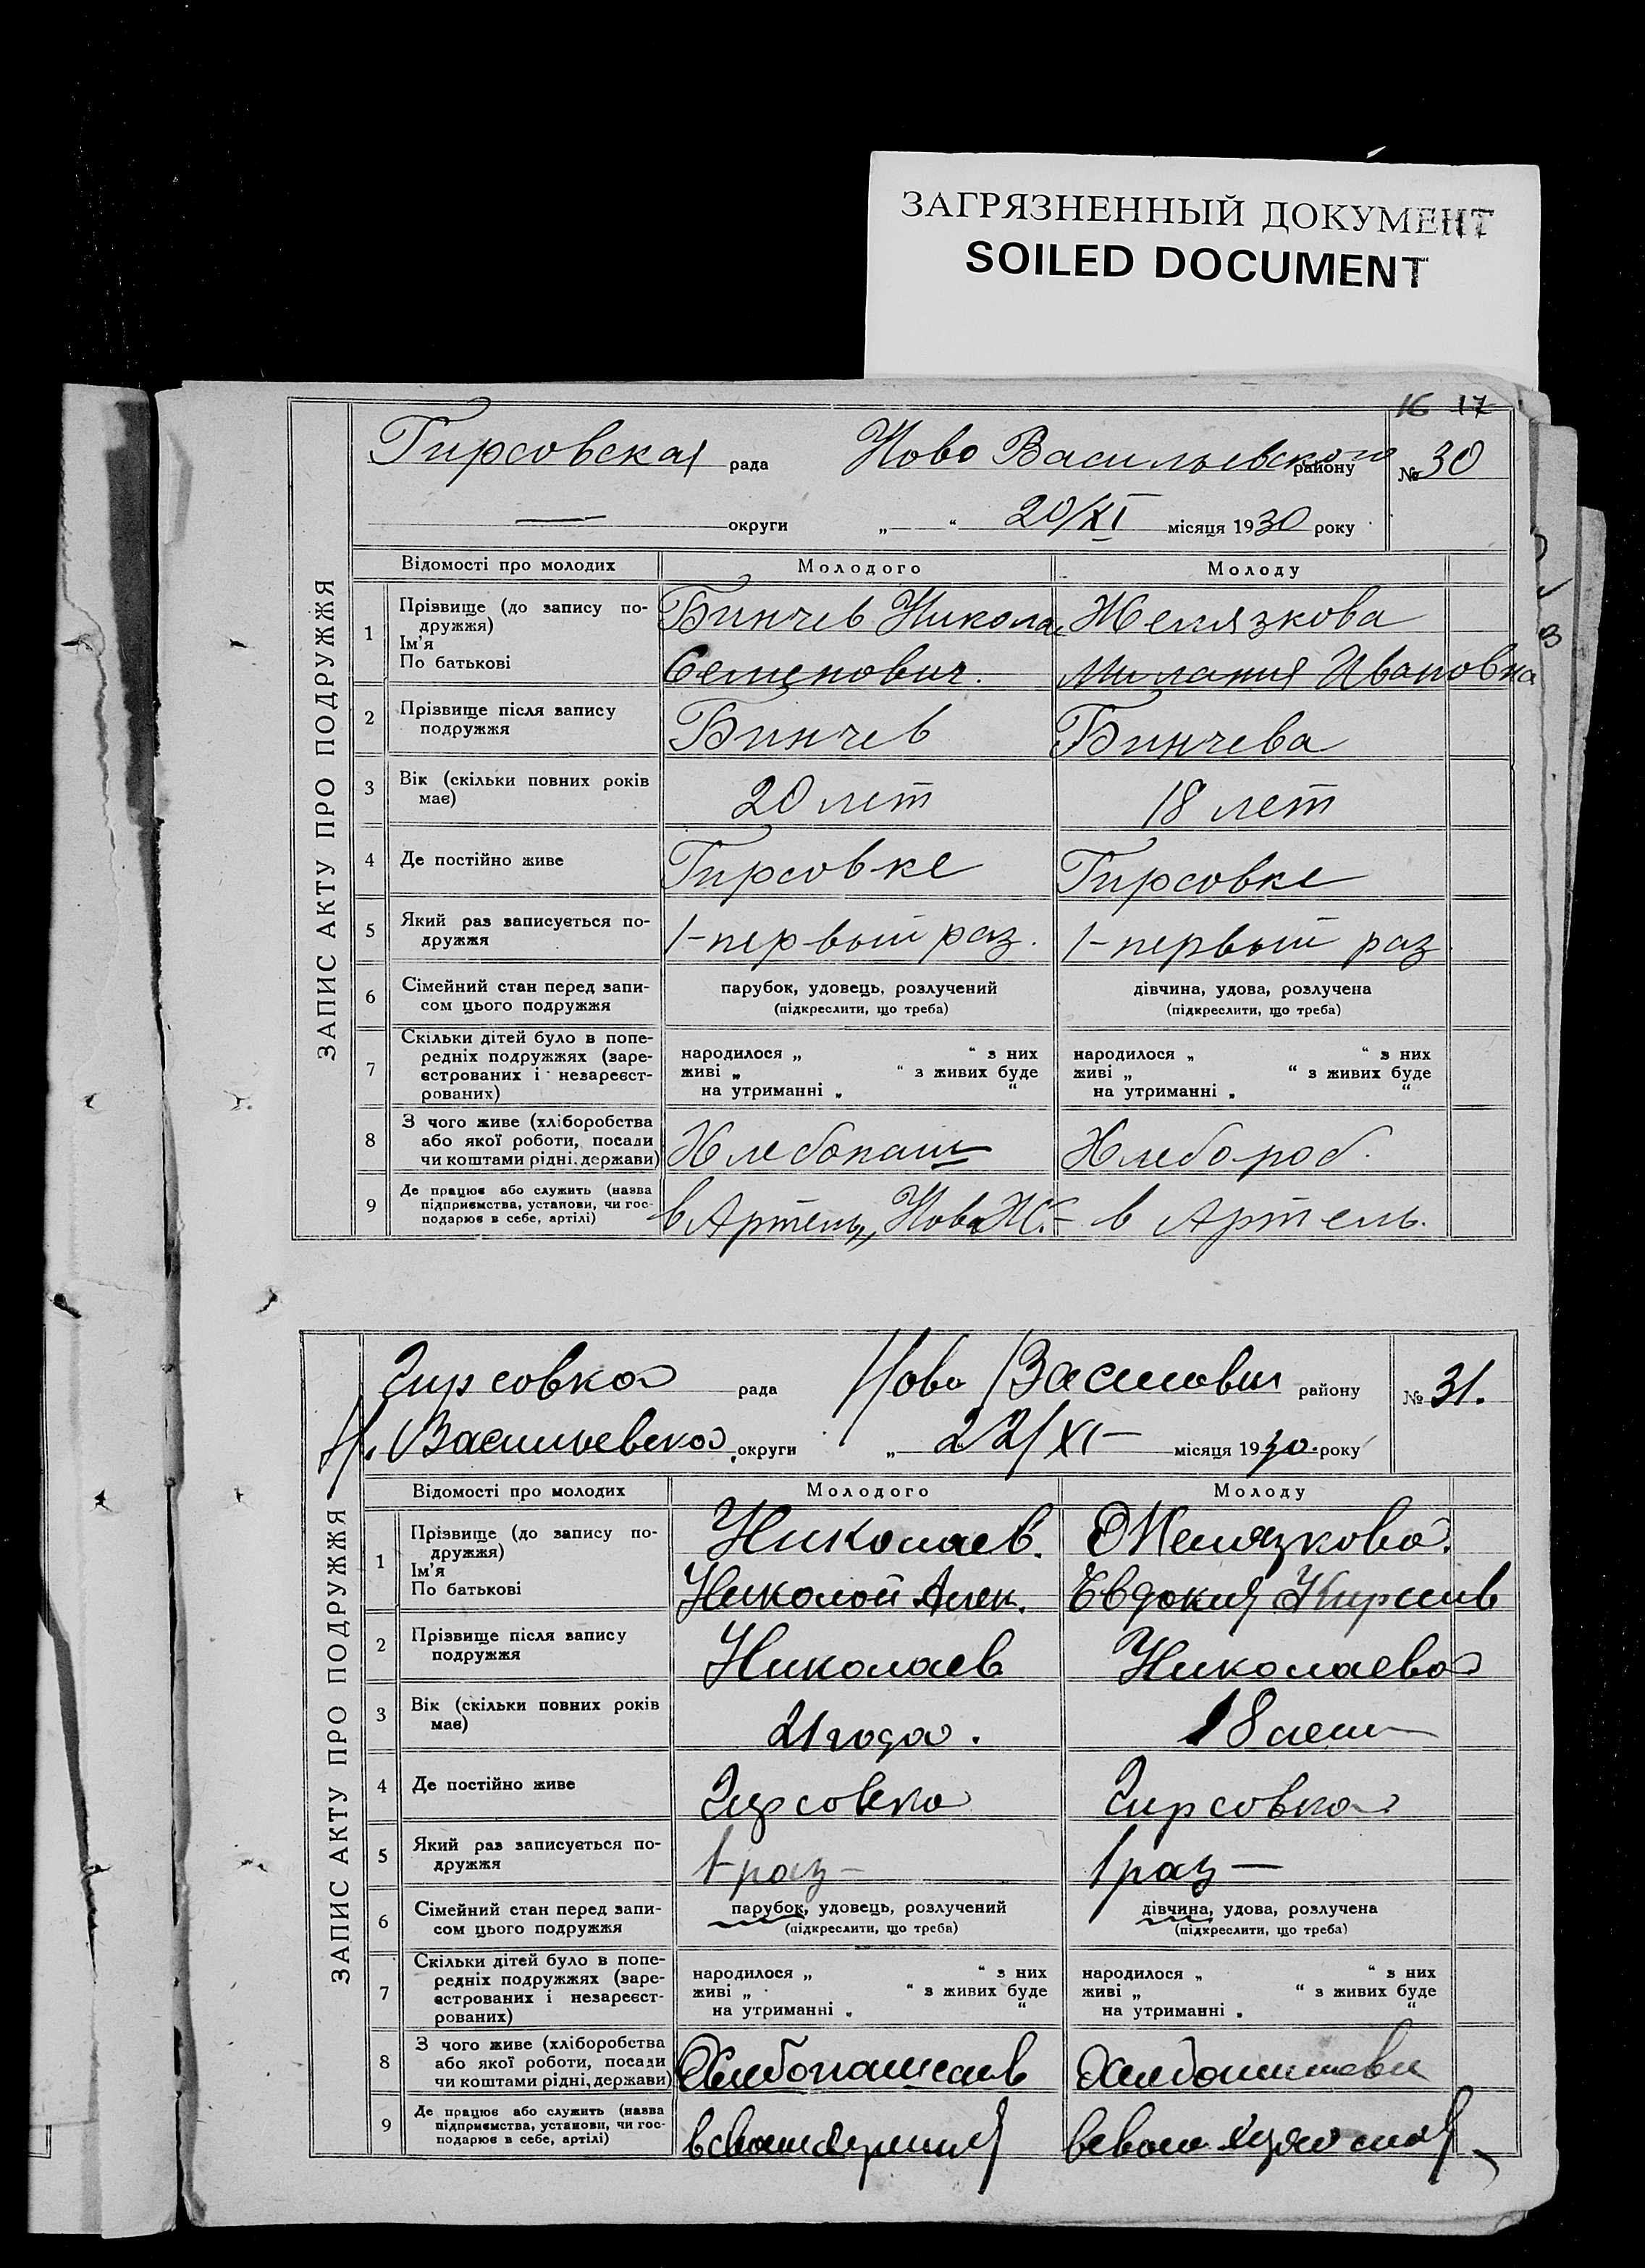 ЗАГРЯЗНЕННЫЙ ДОКУМЕНТ
SOILED DOCUMENT
16 17
ЗАПИС АКТУ ПРО ПОДРУЖЖЯ
Гирсовская рада Ново Васильевского району № 30
— округи „ “ 20/XI місяця 1930 року
Відомості про молодих Молодого Молоду
1 Прізвище (до запису по-
дружжя)
Ім’я
По батькові
Бинчев Никола Желязкова
Семенович. Милания Ивановна
2 Прізвище після запису
подружжя
Бинчев Бинчева
3 Вік (скільки повних років
має)
20 лет 18 лет
4 Де постійно живе Гирсовке Гирсовке
5 Який раз записується по-
дружжя
1-первый раз. 1-первый раз
6 Сімейний стан перед запи-
сом цього подружжя
парубок, удовець, розлучений дівчина, удова, розлучена
(підкреслити, що треба) (підкреслити, що треба)
7 Скільки дітей було в попе-
редніх подружжях (заре-
єстрованих і незареєст-
рованих)
народилося „ “ з них народилося „ “ з них
живі „ “ з живих буде живі „ “ з живих буде
на утриманні „ “ на утриманні „ “
8 З чого живе (хліборобства
або якої роботи, посади
чи коштами рідні, держави)
Хлебопаш Хлебороб.
9 Де працює або служить (назва
підприємства, установи, чи гос-
подарює в себе, артілі)
в Артель „Нова Ж.– в Артель.
ЗАПИС АКТУ ПРО ПОДРУЖЖЯ
Гирсовка рада Ново району № 31.
Н. Васильевска округи „ 22/XI– місяця 1930. року
Відомості про молодих Молодого Молоду
1 Прізвище (до запису по-
дружжя)
Ім’я
По батькові
Николаев. Желязкова.
Николай Алек. Евдокия
2 Прізвище після запису
подружжя
Николаев Николаева
3 Вік (скільки повних років
має)
21 года. 18 лет
4 Де постійно живе Гирсовка Гирсовка
5 Який раз записується по-
дружжя
1-раз– 1 раз—
6 Сімейний стан перед запи-
сом цього подружжя
парубок, удовець, розлучений дівчина, удова, розлучена
(підкреслити, що треба) (підкреслити, що треба)
7 Скільки дітей було в попе-
редніх подружжях (заре-
єстрованих і незареєст-
рованих)
народилося „ “ з них народилося „ “ з них
живі „ “ з живих буде живі „ “ з живих буде
на утриманні „ “ на утриманні „ “
8 З чого живе (хліборобства
або якої роботи, посади
чи коштами рідні, держави)
9 Де працює або служить (назва
підприємства, установи, чи гос-
подарює в себе, артілі)